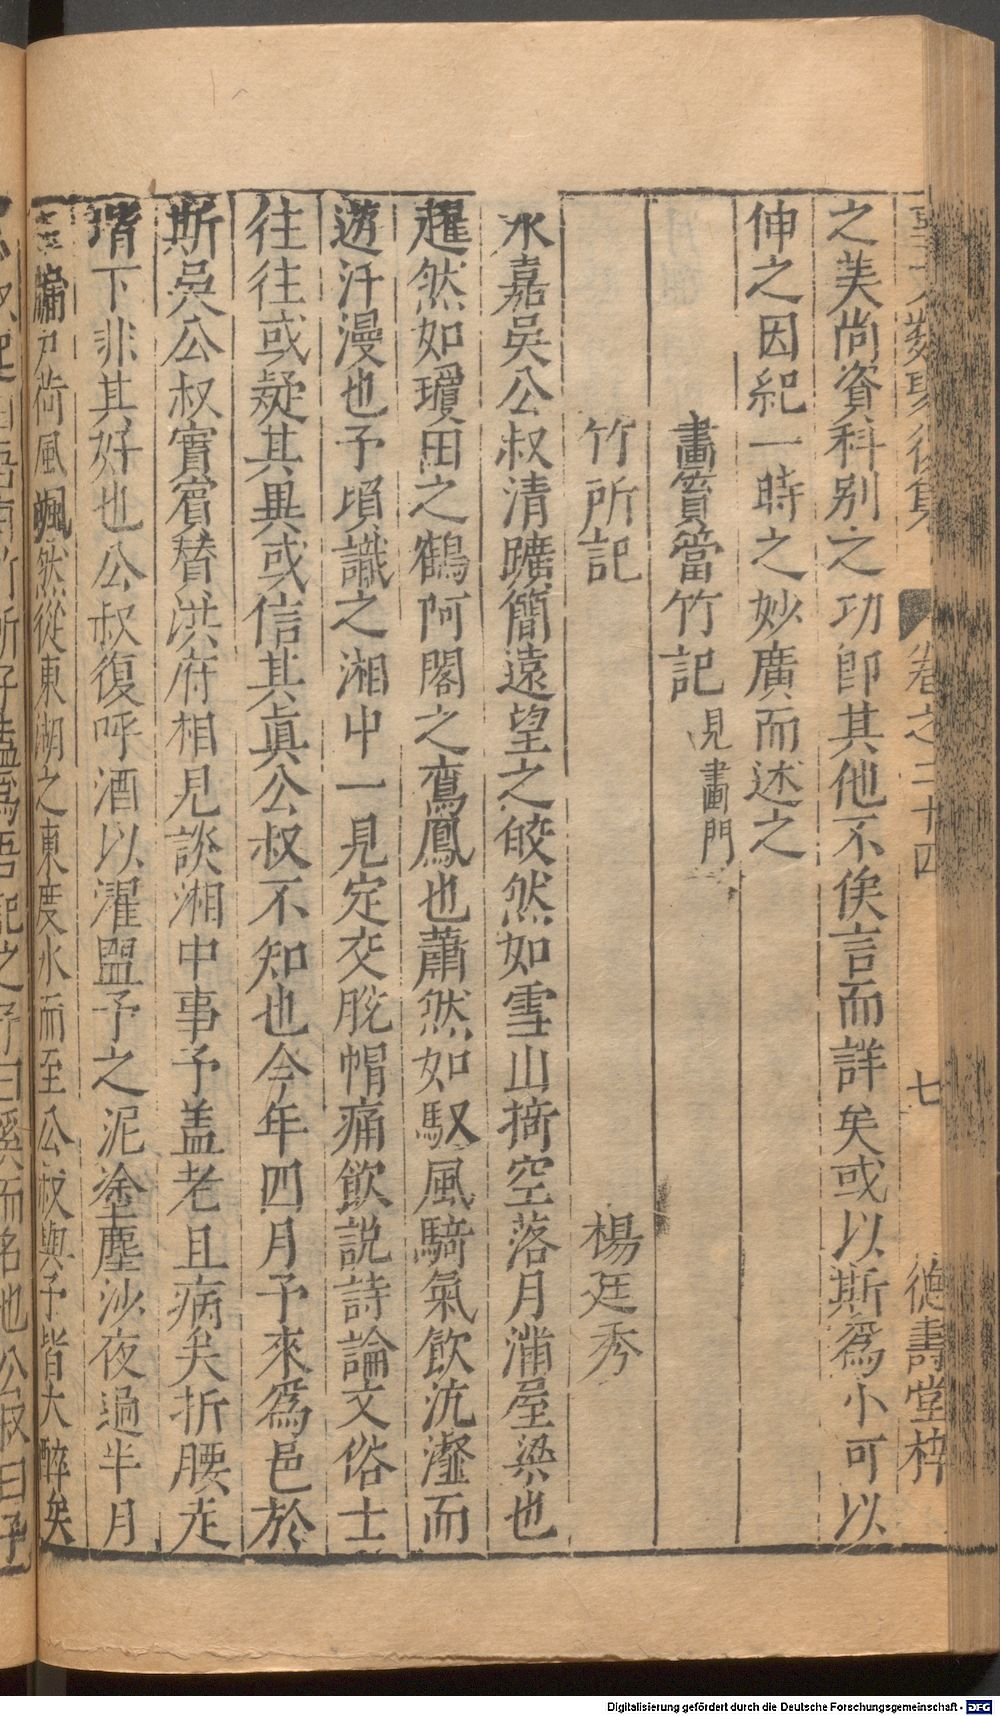 事文類聚後集 卷之二十四 七 德壽堂梓
之美尚資科别之功卽其他不俟言而詳矣或以斯爲小可以
伸之因紀一時之妙廣而述之
畫篔簹竹記見畫門
竹所記 楊廷秀
永嘉吳公叔清曠簡遠望之皎然如雪山掎空落月滿屋梁也
趯然如瓊田之鶴阿閣之鸞鳳也蕭然如馭風騎氣飲沆瀣而
遊汗漫也予頃識之湘中一見定交脫帽痛飲説詩論文俗士
往往或疑其異或信其眞公叔不知也今年四月予來爲邑於
斯吳公叔實賓替洪府相見談湘中事予盖老且病矣折腰走
堦下非其好也公叔復呼酒以濯盥予之泥塗塵沙夜過半月
牖戸荷風颯然從東湖之東度水而至公叔與予皆大醉矣
竹所子盍爲吾記之予曰奚而名也公叔曰子
Digitalisierung gefördert durch die Deutsche Forschungsgemeinschaft - DFG